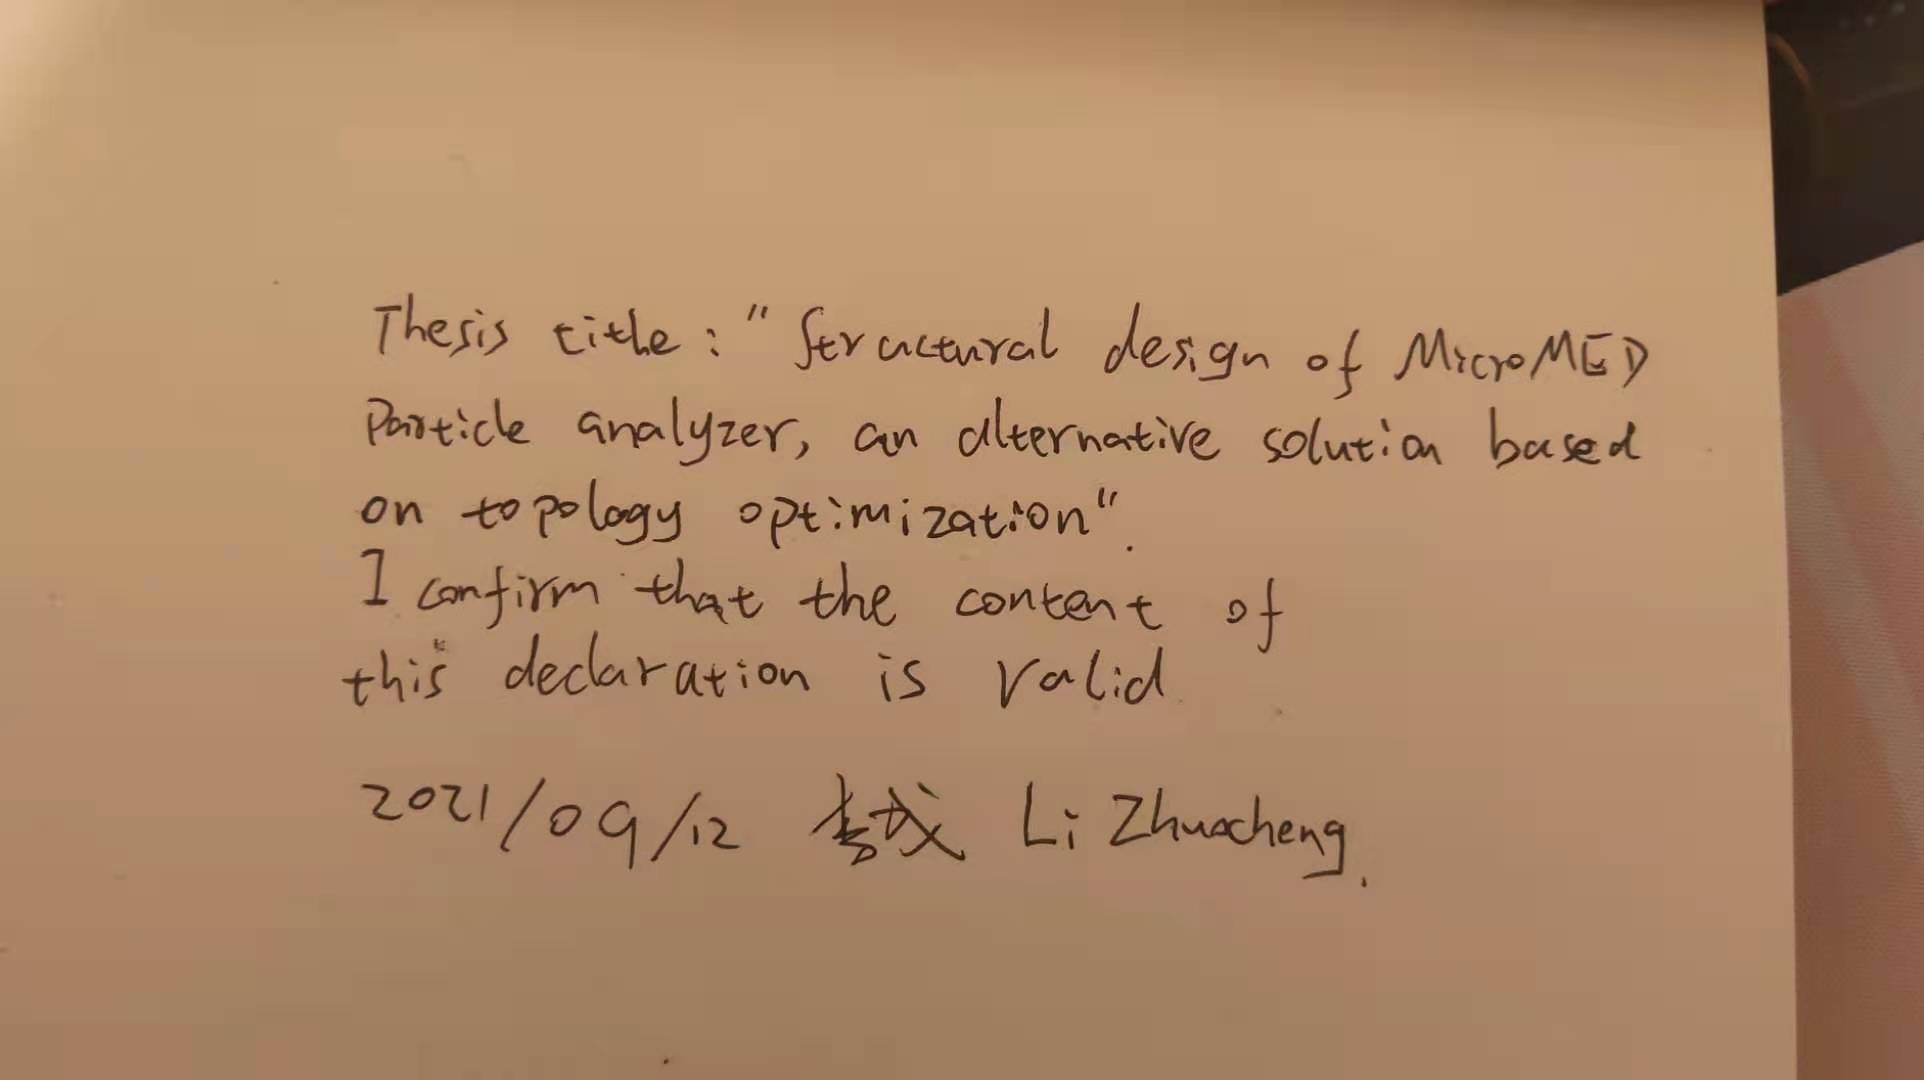 Thesis title: "Structural design of MicroMED
Particle analyzer, an alternative solution based
on topology optimization".
I confirm that the content of
this declaration is valid
2021/09/12 Li Zhuocheng.